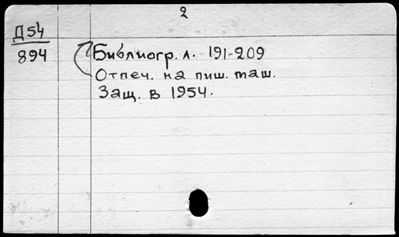 2
Д54
894
Библиогр. л. 191-209
Отпеч. на пиш. маш.
Защ. в 1954.